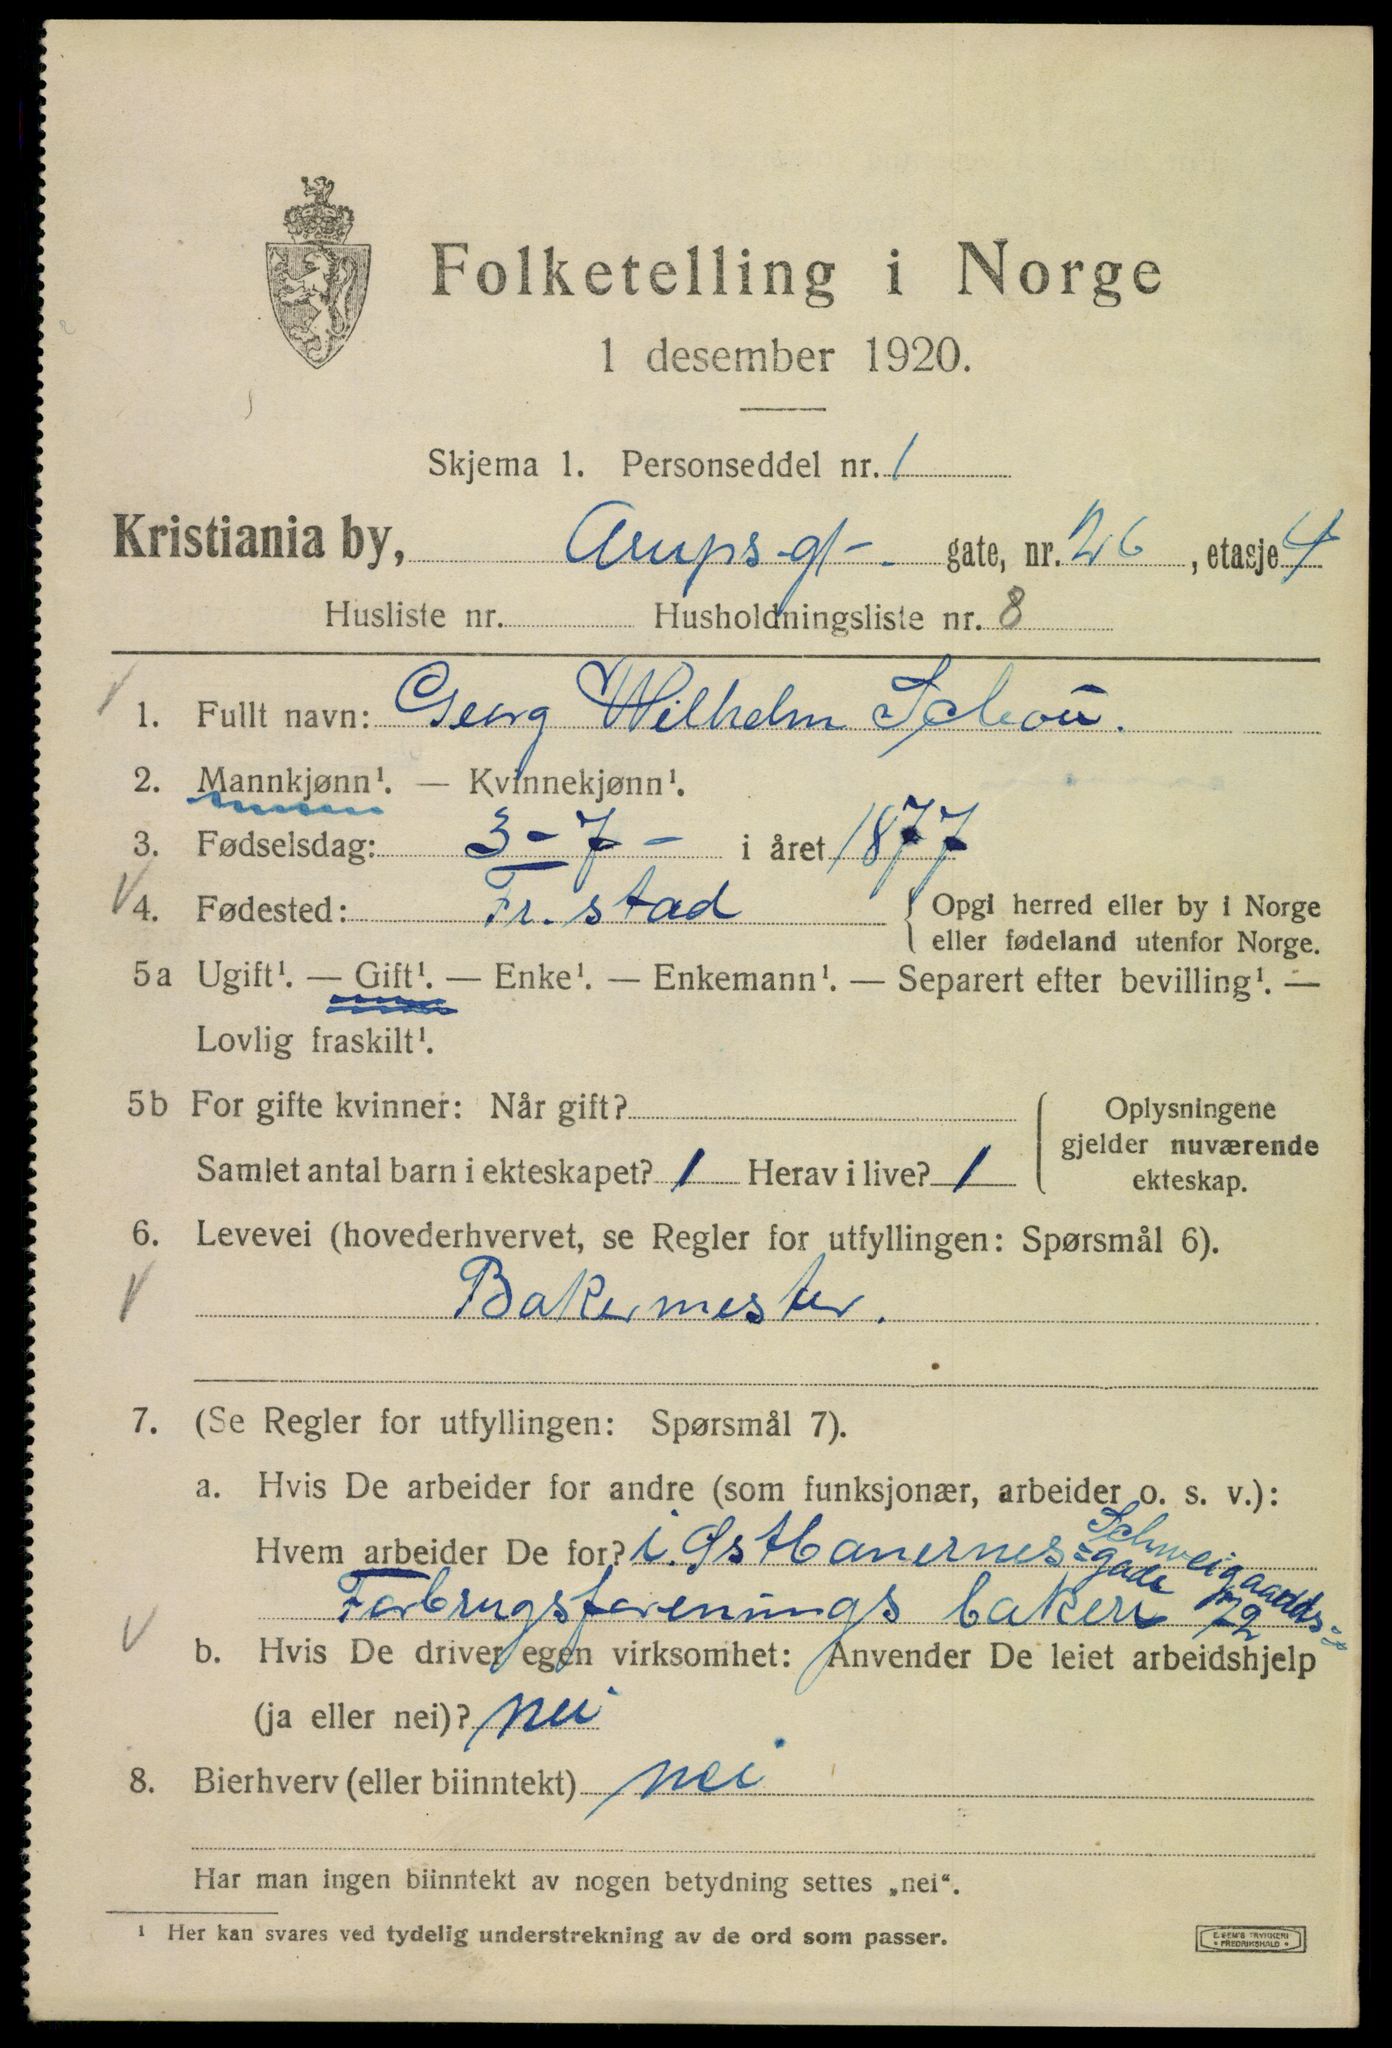 Folketelling i Norge
1 desember 1920.
Skjema 1. Personseddel nr. 1
Kristiania by, Arups gt-. gate, nr. 26, etasje 4
Husliste nr. Husholdningsliste nr. 8
1. Fullt navn: Georg Wilhelm Schou.
2. Mannkjønn¹. — Kvinnekjønn¹.
3. Fødselsdag: 3-7- i året 1877
4. Fødested: Fr. stad { Opgi herred eller by i Norge
eller fødeland utenfor Norge.
5a Ugift¹. — Gift¹. — Enke¹. — Enkemann¹. — Separert efter bevilling¹. —
Lovlig fraskilt¹.
5b For gifte kvinner: Når gift? { Oplysningene
gjelder nuværende
Samlet antal barn i ekteskapet? 1 Herav i live? 1 ekteskap.
6. Levevei (hovederhvervet, se Regler for utfyllingen: Spørsmål 6).
Bakermester.
7. (Se Regler for utfyllingen: Spørsmål 7).
a. Hvis De arbeider for andre (som funksjonær, arbeider o. s. v.):
Hvem arbeider De for? i. Østbanernes Schweigaards=
=gade
Forbrugsforenings bakeri 72
b. Hvis De driver egen virksomhet: Anvender De leiet arbeidshjelp
(ja eller nei)? nei
8. Bierhverv (eller biinntekt) nei
Har man ingen biinntekt av nogen betydning settes „nei“.
¹ Her kan svares ved tydelig understrekning av de ord som passer.
E. SEM'S TRYKKERI
FREDRIKSHALD